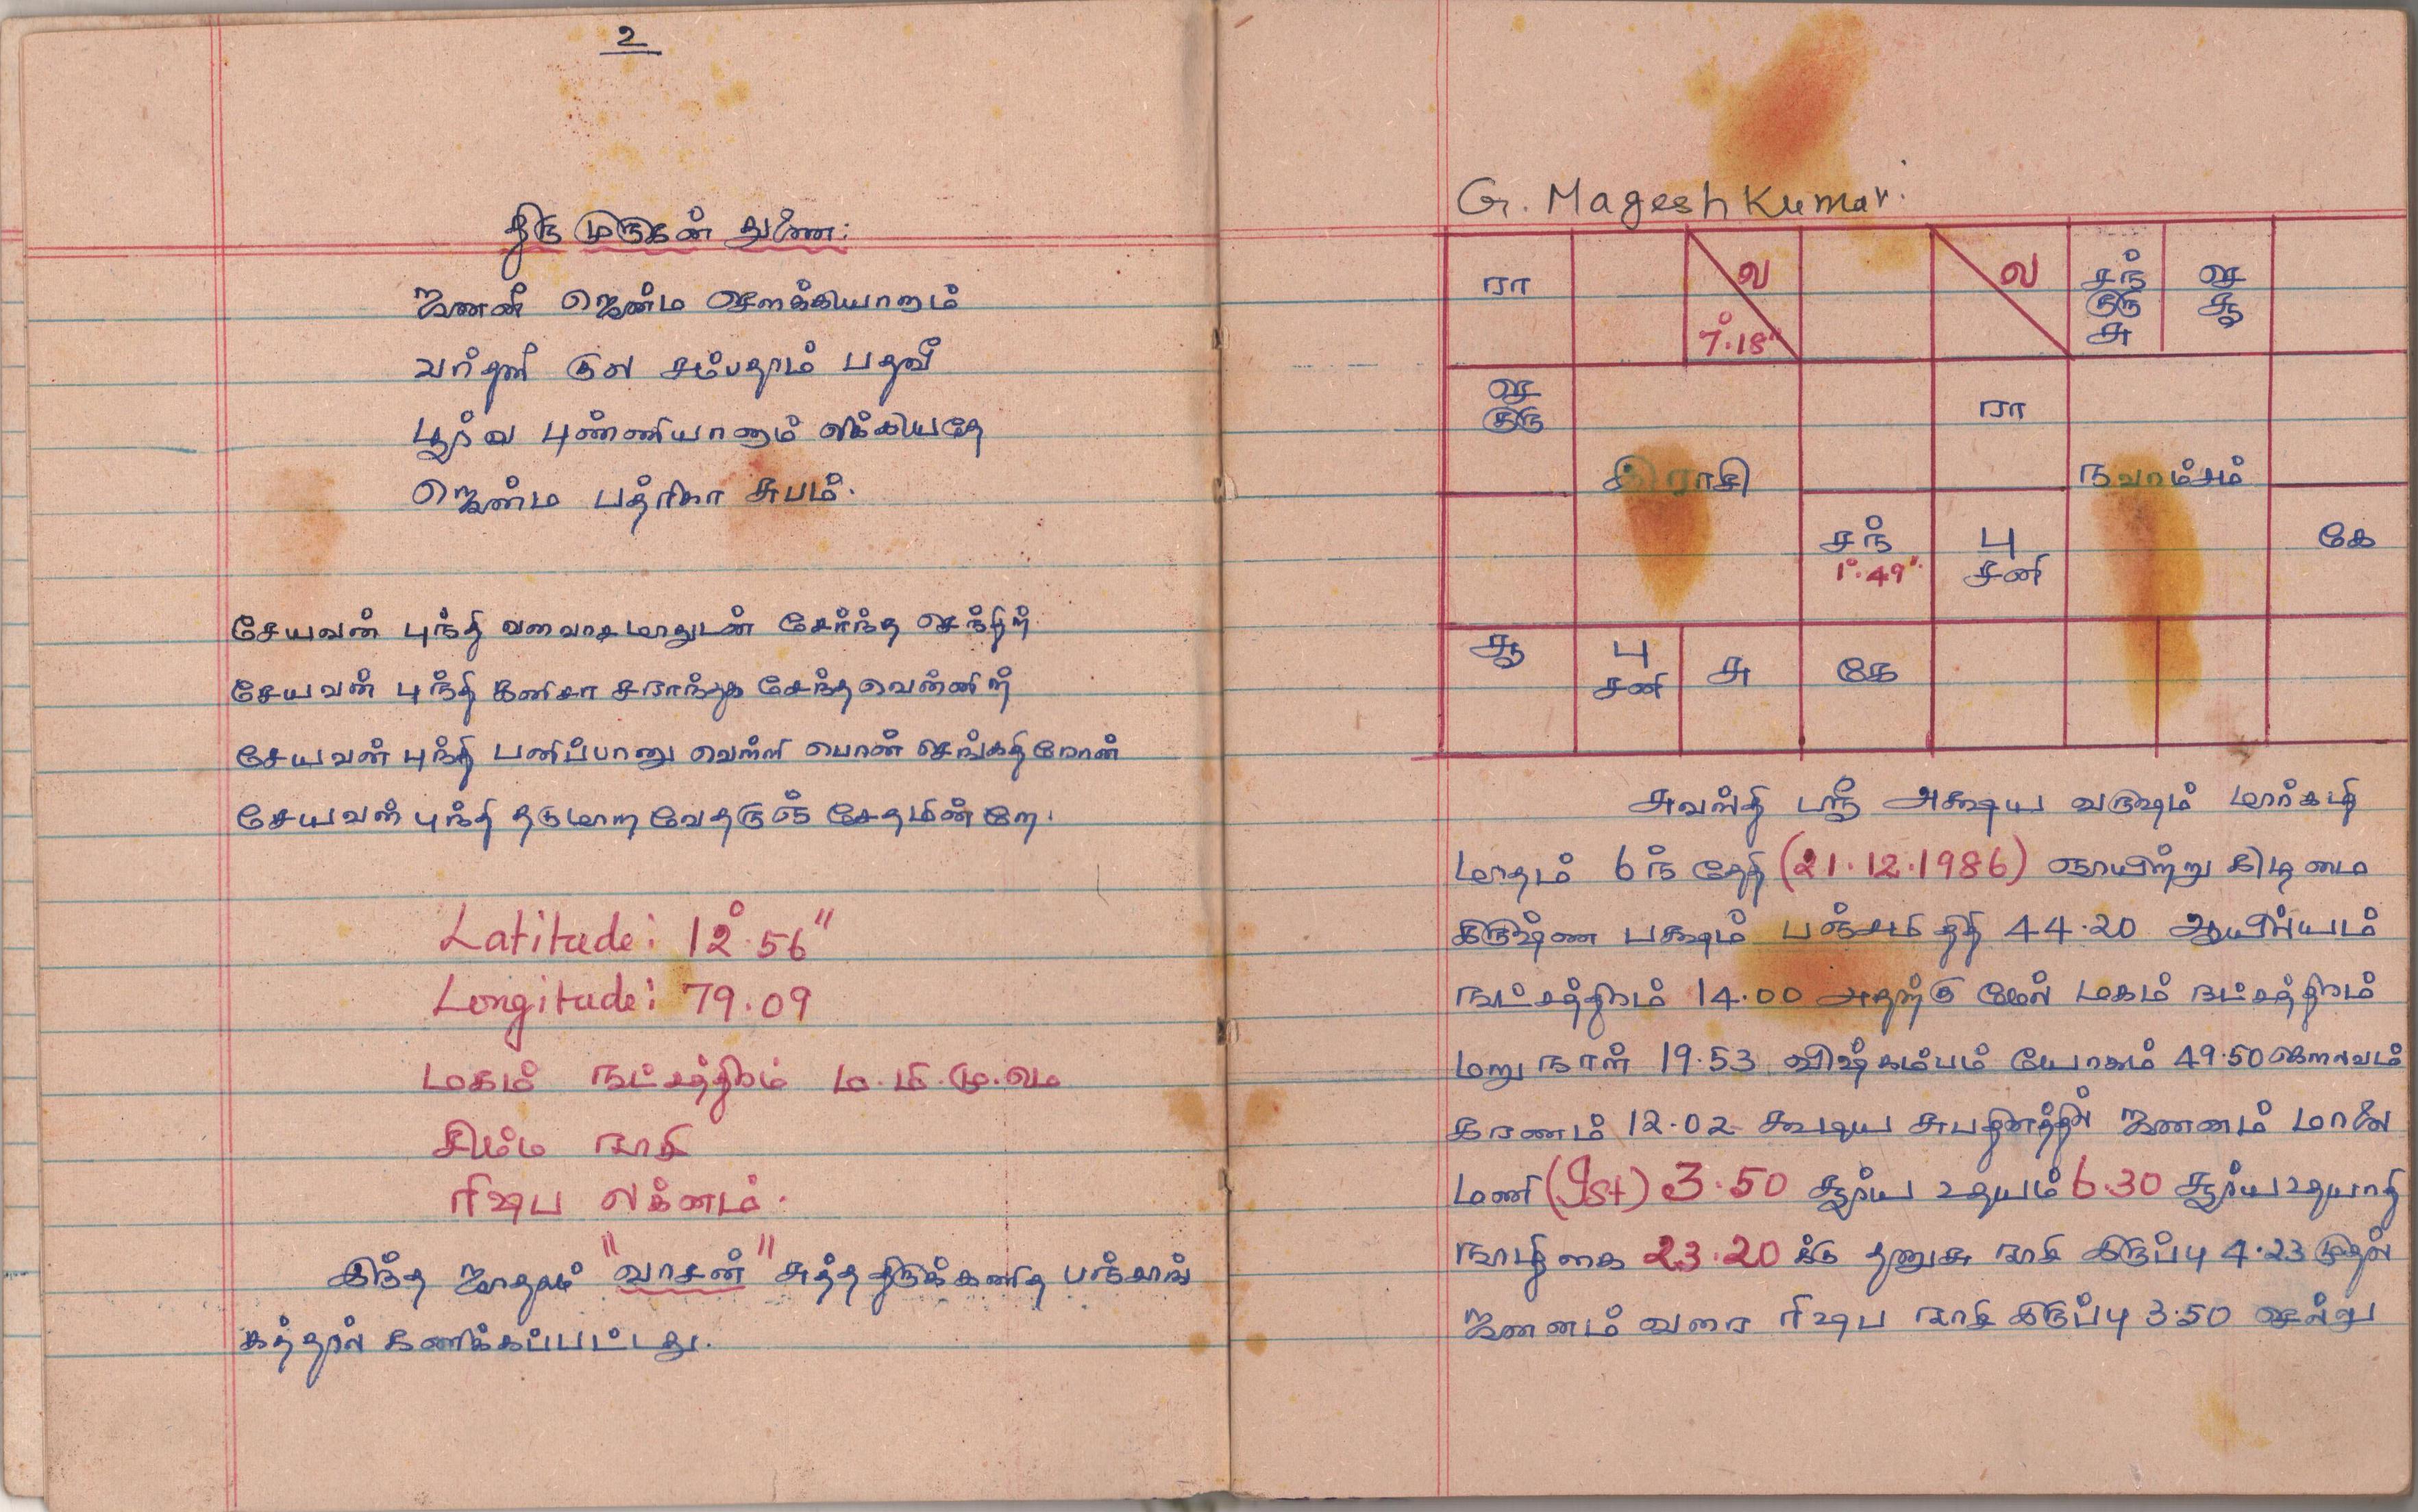 2
திரு முருகன் துணை:
ஜனனி ஜென்ம சௌக்கியானாம்
வர்தனி குல சம்பதாம் பதவீ
பூர்வ புண்ணியானாம் லிக்கியதே
ஜென்ம பத்ரிகா சுபம்.
சேயவன் புந்தி வனவாச மாதுடன் சேர்ந்த செந்திற்
சேயவன் புந்தி கனிசா சராந்தக சேந்த வென்னிற்
சேயவன் புந்தி பனிப்பானு வெற்றி பொன் செங்கதிரோன்
சேயவன் புந்தி தடுமாற வேதருஞ் சேதமின்றே.
Latitude: 12°.56"
Longitude: 79.09
மகம் நட்சத்திரம் ம.மி.மு.மெ
சிம்ம ராசி
ரிஷப லக்னம்.
இந்த ஜாதகம் "வாசன்" சுத்த திருக்கணித பஞ்சாங்
கத்தால் கணிக்கப்பட்டது.
G. Magesh Kumar.
ரா
ல
7°.18"
செ
குரு
இராசி
சந்
1°.49"
சூ
பு
சனி
சு
கே
ல
சந்
குரு
சு
செ
சூ
ரா
நவாம்சம்
பு
சனி
கே
சுவஸ்தி ஸ்ரீ அக்ஷய வருஷம் மார்கழி
மாதம் 6ந் தேதி (21.12.1986) ஞாயிற்று கிழமை
கிருஷ்ண பக்ஷம் பஞ்சமி திதி 44.20 ஆயில்யம்
நட்சத்திரம் 14.00 அதற்கு மேல் மகம் நட்சத்திரம்
மறு நாள் 19.53 விஷ்கம்பம் யோகம் 49.50 கௌலவம்
கரணம் 12.02 கூடிய சுபதினத்தில் ஜனனம் மாலை
மணி (Ist) 3.50 சூர்ய உதயம் 6.30 சூர்ய உதயாதி
நாழிகை 23.20 க்கு தனுசு ராசி இருப்பு 4.23 முதல்
ஜனனம் வரை ரிஷப ராசி இருப்பு 3.50 சென்று